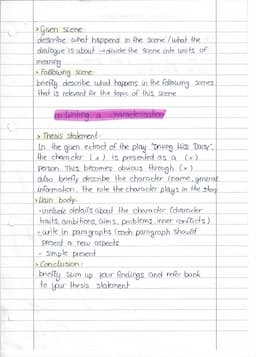 > Given scene
describe what happend in the scene / what the
dialogue is about → divide the scene into units of
meaning
> Following scene:
briefly describe what happens in the following scenes
that is relevant for the topic of this scene
Writing a characterisation
> Thesis statement:
In the given extract of the play "Driving Miss Daisy",
the character (x) is presented as a (x)
person. This becomes obvious through (x)
also briefly describe the character (name, general
information, the role the character plays in the story
> Main body:
- include details about the character (character
traits, ambitions, aims, problems, inner conflicts)
- write in paragraphs (each paragraph should
present a new aspects
- simple present
> Conclusion:
briefly sum up your findings and refer back
to your thesis statement